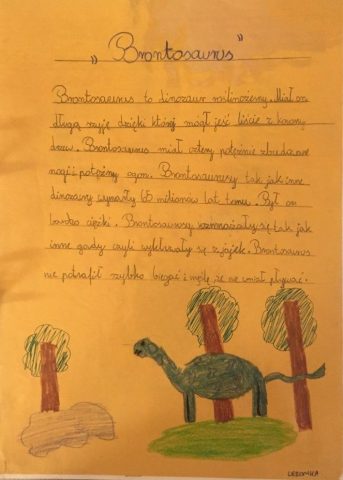 „Brontosaurus”
Brontosaurus to dinozaur roślinożerny. Miał on
długą szyję dzięki której mógł jeść liście z korony
drzew. Brontosaurus miał cztery potężnie zbudowane
nogi i potężny ogon. Brontosaurusy tak jak inne
dinozaury wymarły 65 milionów lat temu. Był on
bardzo ciężki. Brontosaurusy rozmnażały się tak jak
inne gady czyli wykluwały się z jajek. Brontosaurus
nie potrafił szybko biegać i myślę, że nie umiał pływać.